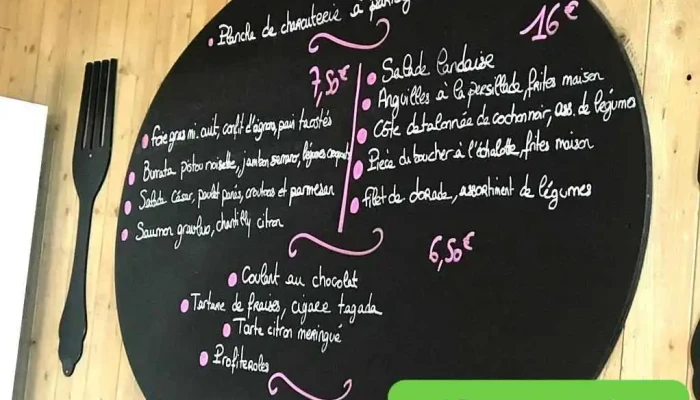 Planche de charcuterie à partag
16€
7,50€
Foie gras mi.cuit, confit d'oignons, pain toastés
Burrata pistou noisette, jambon serrano, légumes croquants
Salade César, poulet panés, croutons et parmesan
Saumon gravlax, chantilly citron
Salade landaise
Anguilles à la persillade, frites maison
Côte de cochon noir, ass. de légumes
Pièce du boucher à l'échalotte, frites maison
Filet de dorade, assortiment de légumes
6,50€
Coulant au chocolat
Tartare de fraises, tagada
Tarte citron meringué
Profiteroles